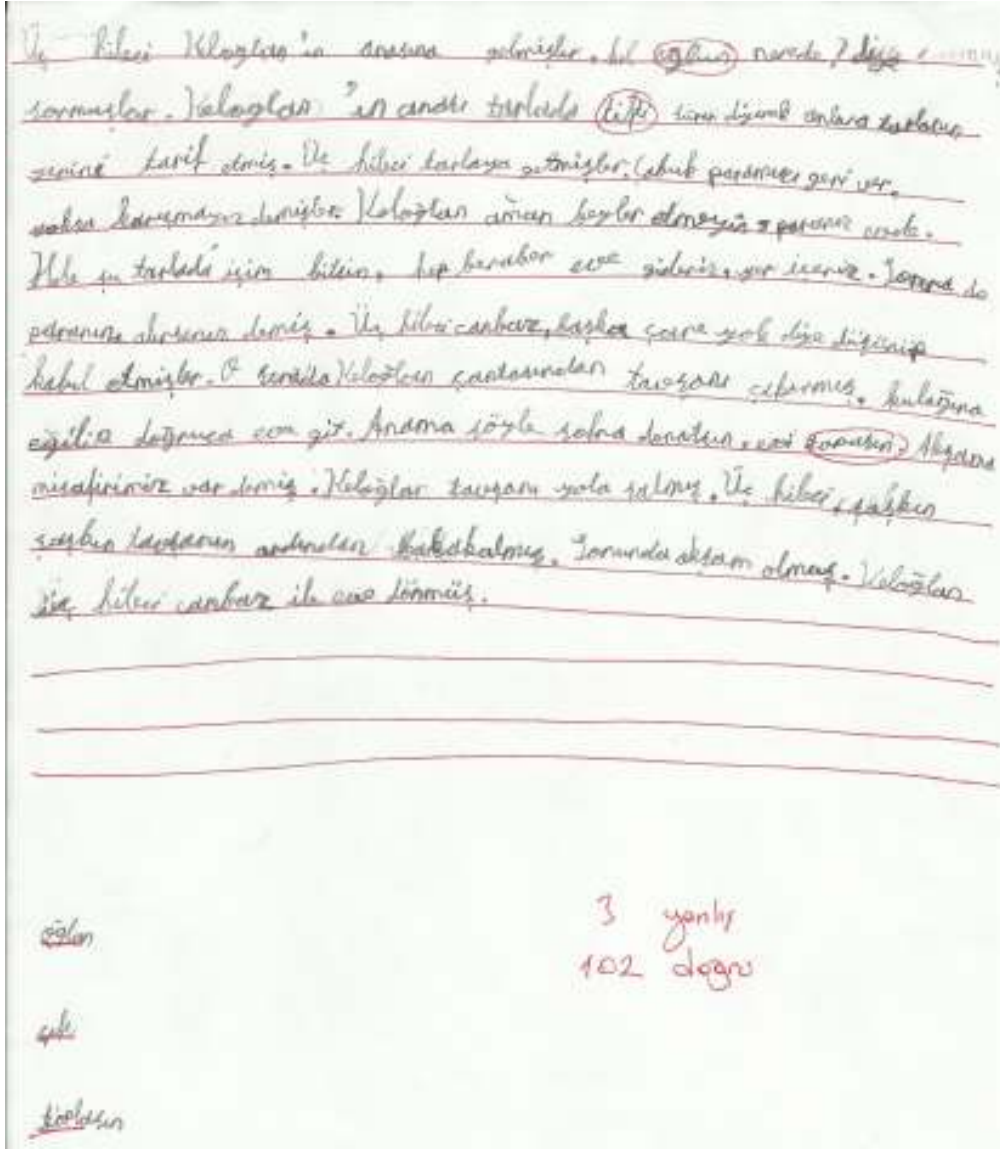 Üç hileci Kloğlan'ın anasına gelmişler. kel oğlun nerede? diye
sormuşlar. Keloğlan'ın anası tarlada diyerek onlara tarlanın
yerini tarif etmiş. Üç hileci tarlaya gitmişler. Çabuk paramızı geri ver.
yoksa karışmayız demişler. Keloğlan aman beyler etmeyin paranız evde.
Hele şu tarlada işim bitsin, hep beraber eve gideriz, yer içeriz. Sonra da
alırsınız demiş. Üç hileci canbaz, başka çare yok diye düşünüp
kabul etmişler. O sırada Keloğlan çantasından tavşanı çıkarmış, kulağına
eğilip doğruca eve git. Anama söyle sofra donatsın, evi Akşama
misafirimiz var demiş. Keloğlan tavşanı yola salmış. Üç hileci, şaşkın
şaşkın tavşanın ardından bakakalmış. Sonunda akşam olmuş. Keloğlan
üç hileci canbaz ile eve dönmüş.
3 yanlış
102 doğru
oğlan